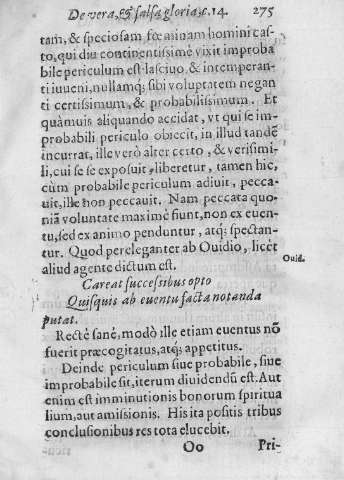 De vera, & falsa gloria, c.14. 275
tam, & speciosam fœminam homini cas-
to, qui diu continentissimè vixit improba
bile periculum est: lasciuo, & intemperan-
ti iuueni, nullamq; sibi voluptatem negan
ti certissimum, & probabilissimum. Et
quàmuis aliquando accidat, vt qui se im-
probabili periculo obiecit, in illud tandē
incurrat, ille verò alter certo, & verisimi-
li, cui se se exposuit, liberetur, tamen hic,
cùm probabile periculum adiuit, pecca-
uit, ille non peccauit. Nam peccata quo-
niā voluntate maximè fiunt, non ex euen-
tu, sed ex animo penduntur, atq; spectan-
tur. Quod pereleganter ab Ouidio, licèt
aliud agente dictum est.
Ouid.
Careat successibus opto
Quisquis ab euentu facta notanda
putat.
Rectè sanè, modò ille etiam euentus nō
fuerit præcogitatus, atq; appetitus.
Deinde periculum siue probabile, siue
improbabile sit, iterum diuidendū est. Aut
enim est imminutionis bonorum spiritua
lium, aut amissionis. His ita positis tribus
conclusionibus res tota elucebit.
Oo Pri-